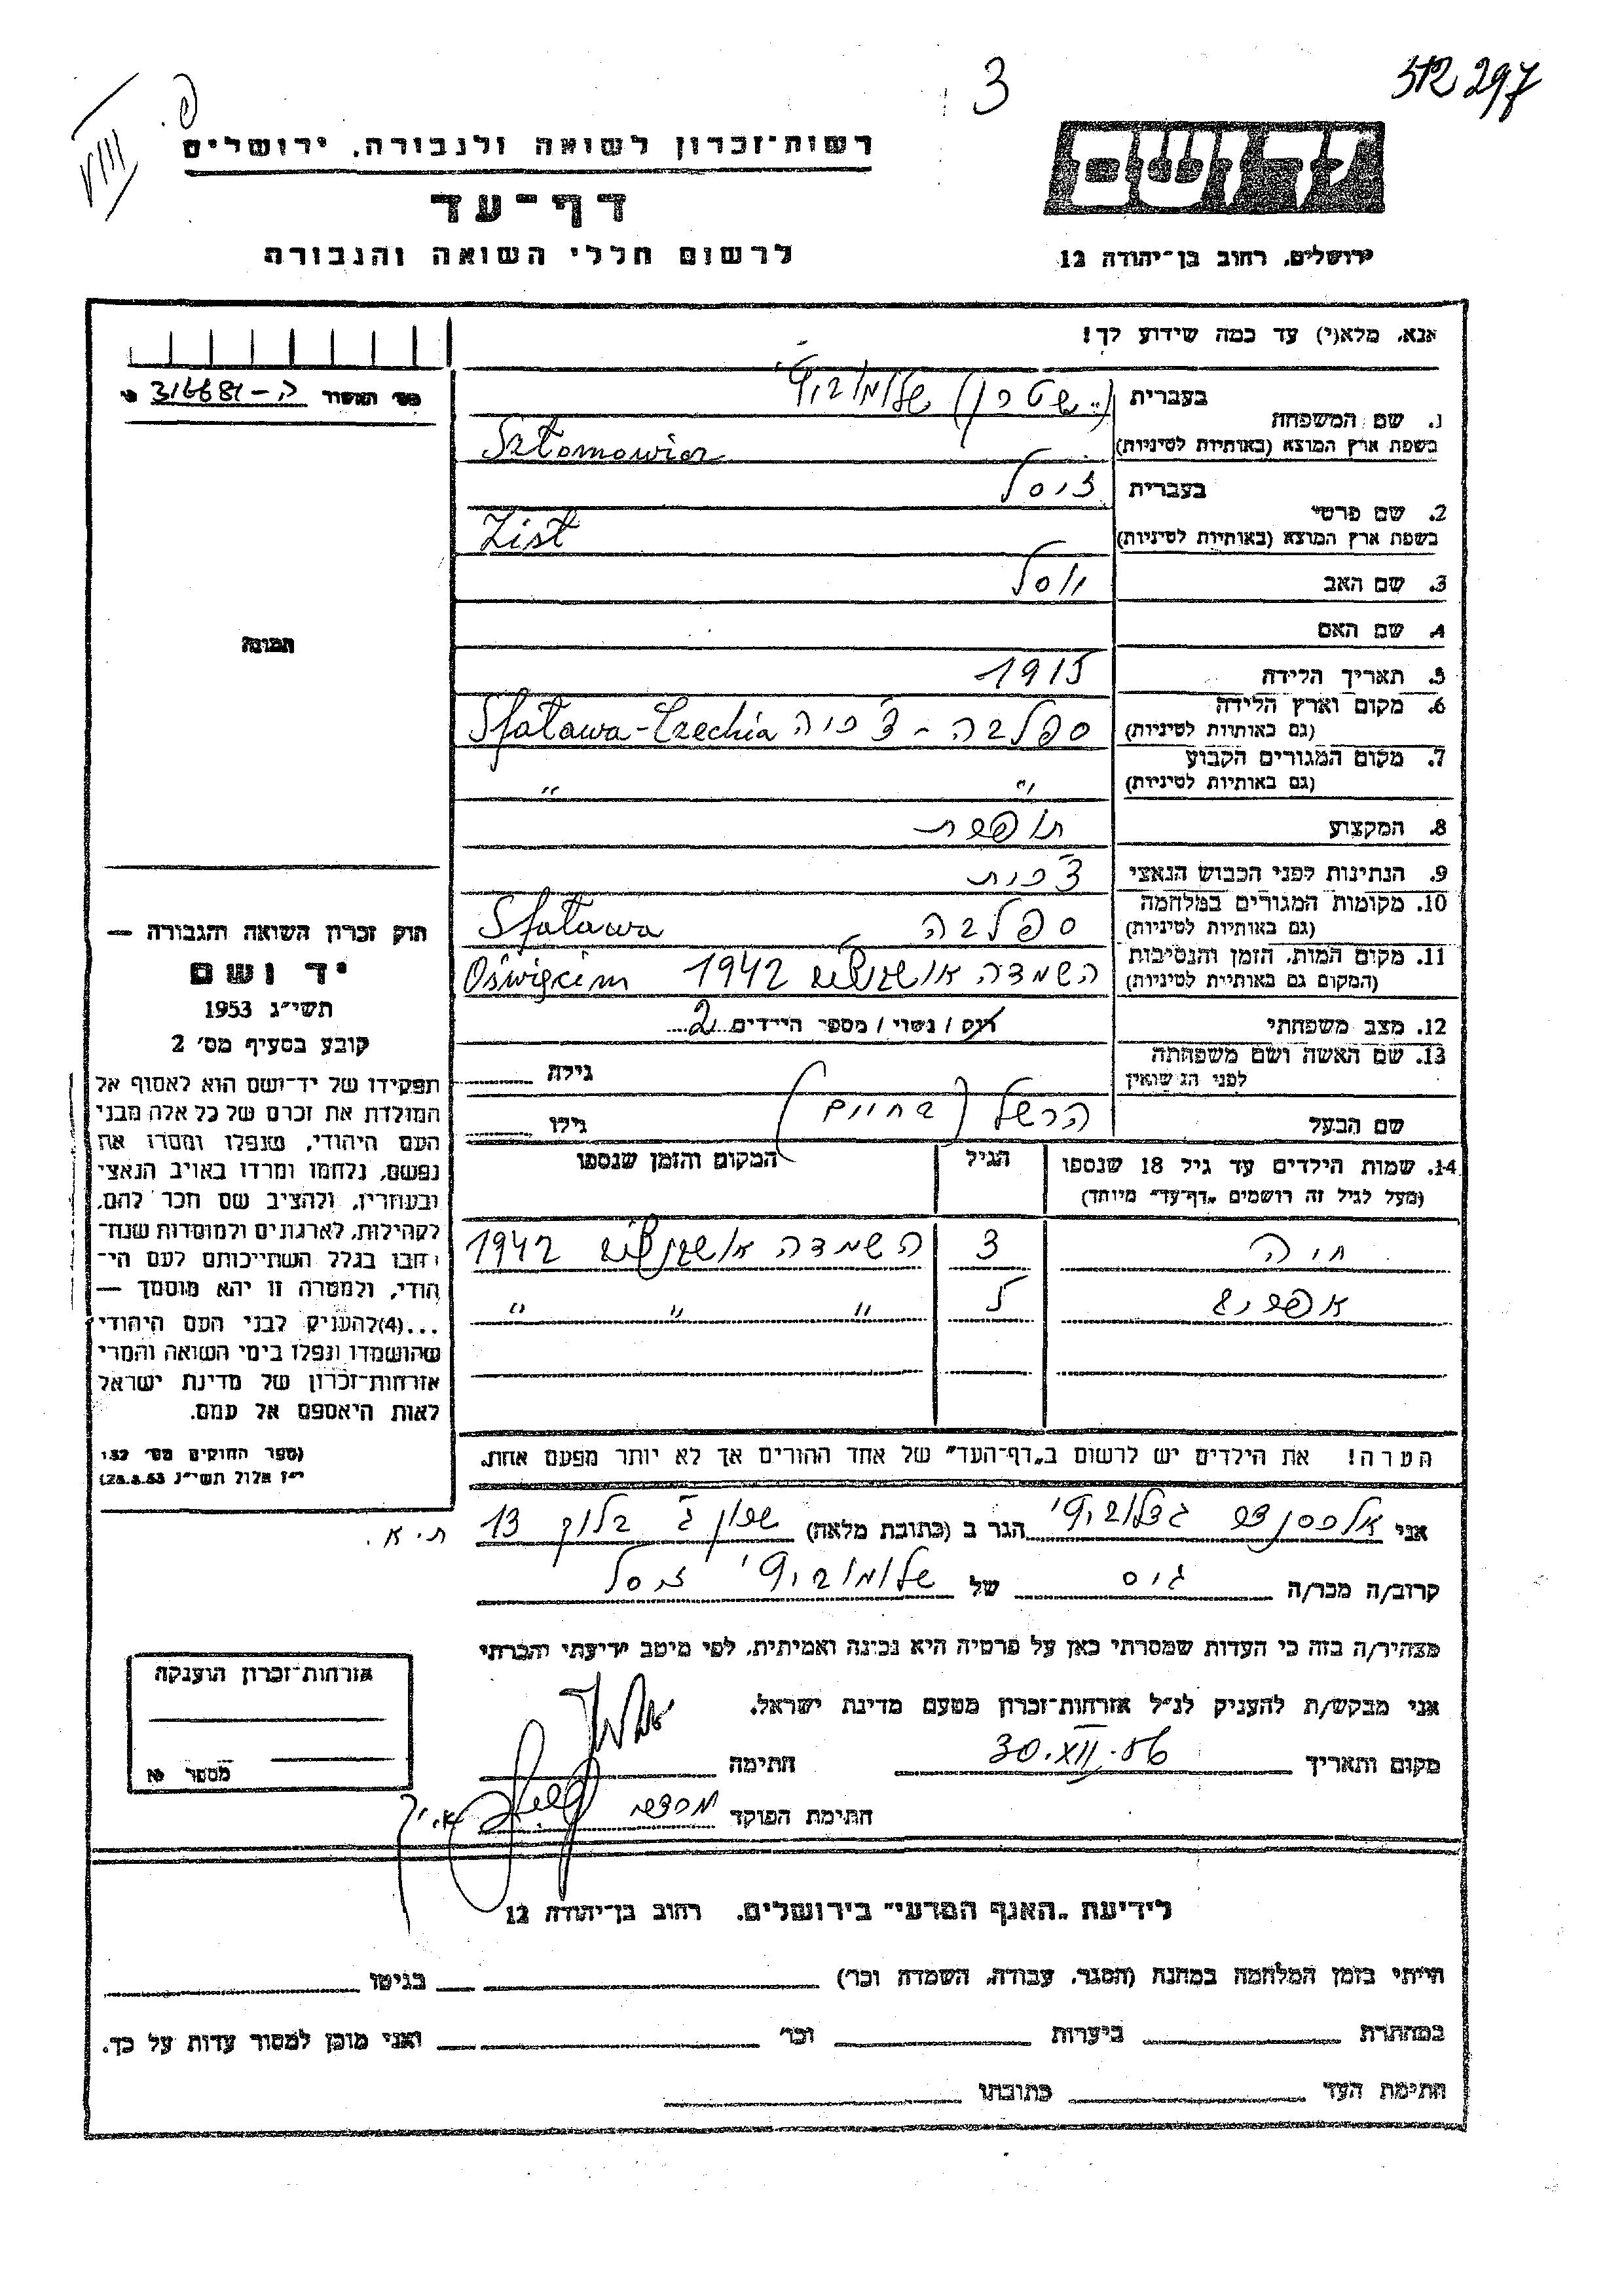 3
רשות־זכרון לשואה ולגבורה, ירושלים
דף־עד
לרשום חללי השואה והגבורה
ירושלים, רחוב בן־יהודה 12
אנא, מלא(י) עד כמה שידוע לך!
מס' תאשור ק-316681
תמונה
1. שם המשפחה
בעברית שלומוביץ'
בשפת ארץ המוצא (באותיות לטיניות) Szlomowicz
2. שם פרטי
בעברית ציסל
בשפת ארץ המוצא (באותיות לטיניות)
3. שם האב יוסל
4. שם האם
5. תאריך הלידה 1915
6. מקום וארץ הלידה
(גם באותיות לטיניות) ספלבה - צ'כיה Sfalawa-Czechia
7. מקום המגורים הקבוע
(גם באותיות לטיניות) " "
8. המקצוע תופרת
9. הנתינות לפני הכבוש הנאצי צ'כית
10. מקומות המגורים במלחמה
(גם באותיות לטיניות) ספלבה Sfalawa
11. מקום המות, הזמן והנסיבות
(המקום גם באותיות לטיניות) השמדה אושויץ 1942 Oświęcim
12. מצב משפחתי רוק / נשוי / מספר הילדים 2
13. שם האשה ושם משפחתה
לפני הנשואין
גילה
שם הבעל הרשל (בחיים)
גילו
14. שמות הילדים עד גיל 18 שנספו
(מעל לגיל זה רושמים "דף־עד" מיוחד)
הגיל
המקום והזמן שנספו
חיה 3 השמדה אושויץ 1942
" " "
הערה! את הילדים יש לרשום ב"דף־העד" של אחד ההורים אך לא יותר מפעם אחת.
חוק זכרון השואה והגבורה —
יד ושם
תשי"ג 1953
קובע בסעיף מס' 2
תפקידו של יד־ושם הוא לאסוף אל
המולדת את זכרם של כל אלה מבני
העם היהודי, שנפלו ומסרו את
נפשם, נלחמו ומרדו באויב הנאצי
ובעוזריו, ולהציב שם וזכר להם,
לקהילות, לארגונים ולמוסדות שנח־
רבו בגלל השתייכותם לעם הי־
הודי, ולמטרה זו יהא מוסמך —
...(4) להעניק לבני העם היהודי
שהושמדו ונפלו בימי השואה והמרי
אזרחות־זכרון של מדינת ישראל
לאות היאספם אל עמם.
(ספר החוקים מס' 132
י"ז אלול תשי"ג 28.8.53)
אני הגר ב (כתובת מלאה) שכון ג' בלוק 13 ת"א.
קרוב/ה מכר/ה גיס של שלומוביץ' ציסל
מצהיר/ה בזה כי העדות שמסרתי כאן על פרטיה היא נכונה ואמיתית, לפי מיטב ידיעתי והכרתי
אני מבקש/ת להעניק לנ"ל אזרחות־זכרון מטעם מדינת ישראל.
מקום ותאריך 30.XII.56 חתימה
חתימת הפוקד
אזרחות־זכרון הוענקה
מספר
לידיעת "האגף המדעי" בירושלים, רחוב בן־יהודה 12
הייתי בזמן המלחמה במחנה (הסגר, עבודה, השמדה וכו') בגיטו
במחתרת ביערות וכו' ואני מוכן למסור עדות על כך.
חתימת העד כתובתו